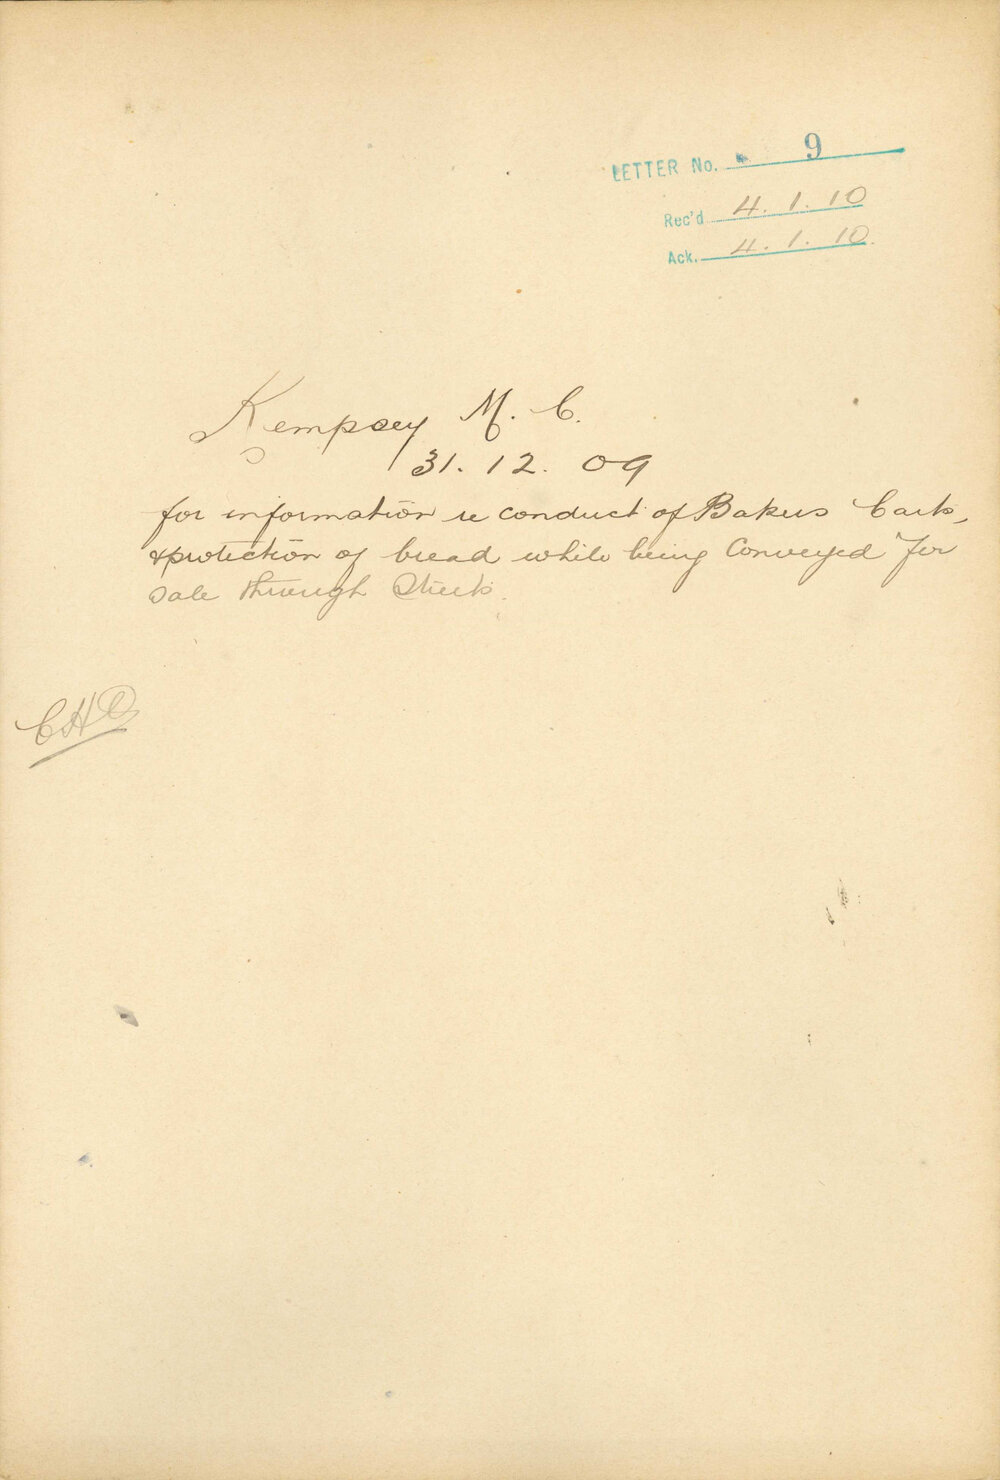 LETTER No. 9
Rec'd 4.1.10
Ack. 4.1.10.
Kempsey M. C.
31. 12. 09
for information re conduct of Bakers Carts,
& protection of bread while being Conveyed for
sale through Streets.
CHO